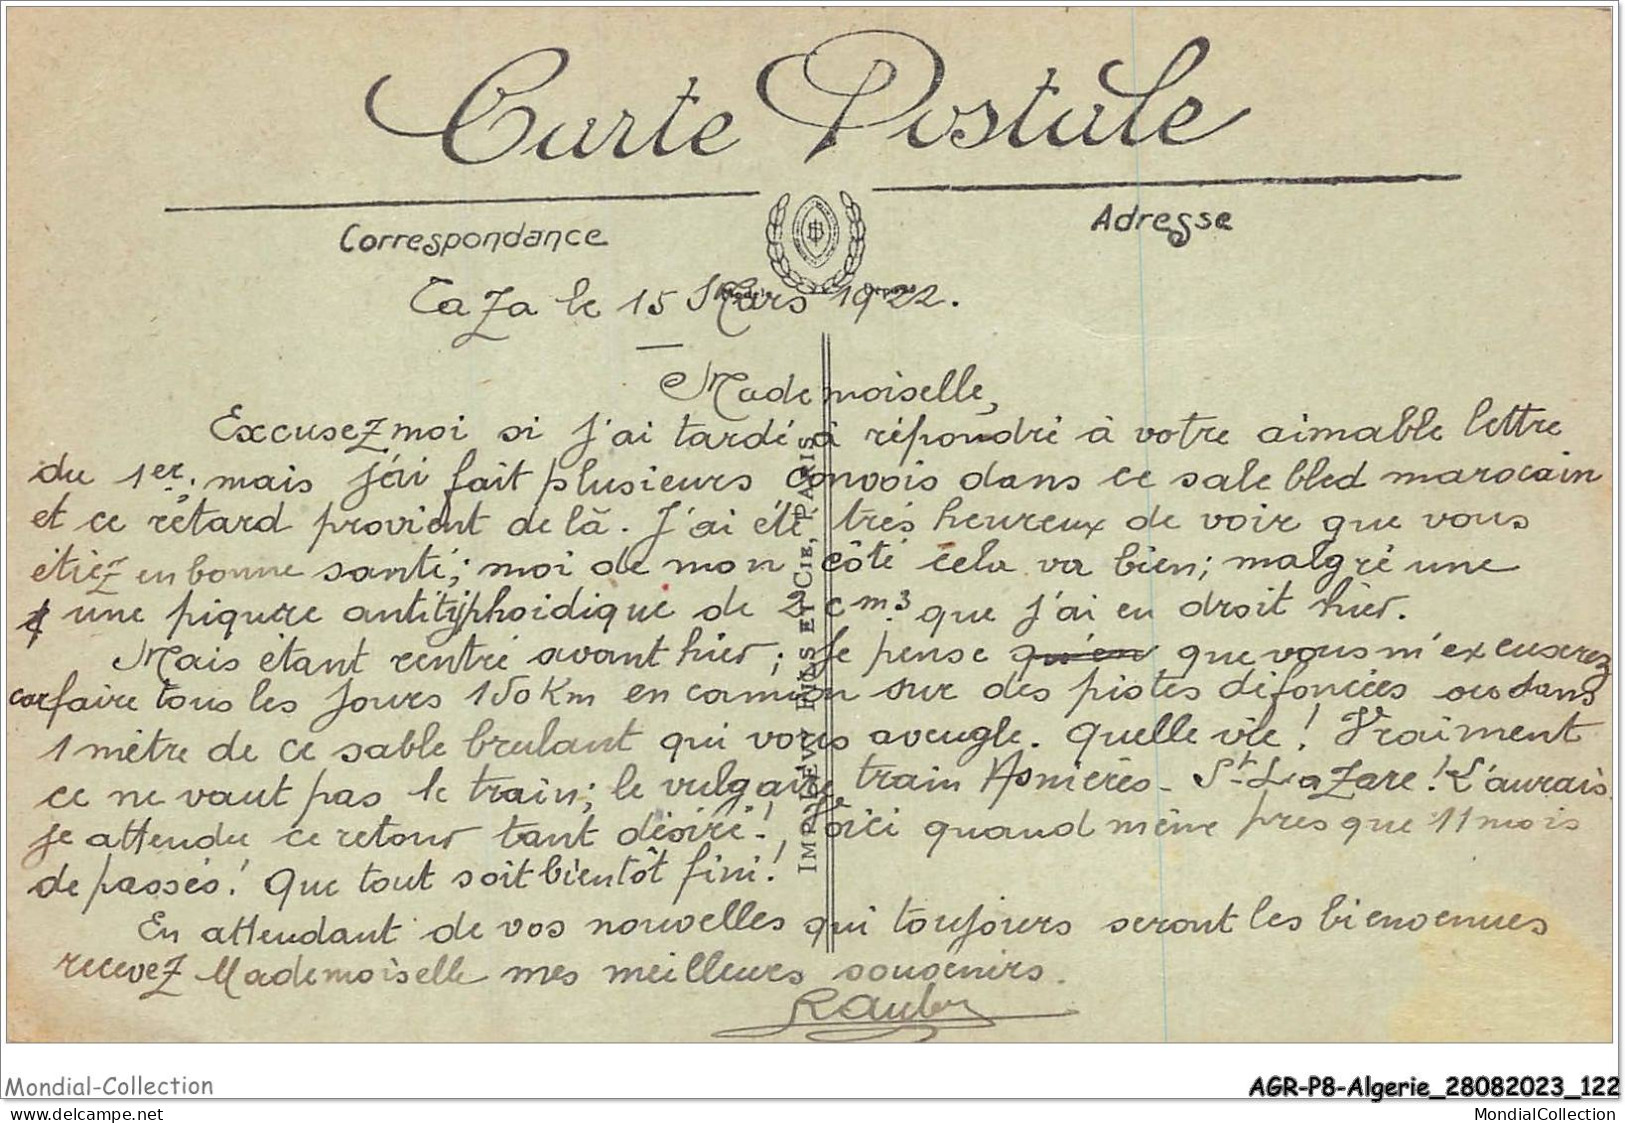 Carte Postale
Correspondance
Adresse
Taza le 15 Mars 1922.
Mademoiselle,
Excusez moi si j'ai tardé à répondre à votre aimable lettre
du 1er. mais j'ai fait plusieurs convois dans ce sale bled marocain
et ce retard provient de là. J'ai été très heureux de voir que vous
étiez en bonne santé; moi de mon côté cela va bien; malgré une
une piqure antityphoidique de 2 cm3 que j'ai eu droit hier.
Mais étant rentré avant hier; je pense qu'en que vous m'excuserez
car faire tous les jours 150 Km en camion sur des pistes défoncées ou dans
1 mètre de ce sable brulant qui vous aveugle. Quelle vie! Vraiment
ce ne vaut pas le train; le vulgaire train Asnières - St-Lazare! L'aurais
je attendu ce retour tant désiré!, Voici quand même presque 11 mois
de passés! Que tout soit bientôt fini!
En attendant de vos nouvelles qui toujours seront les bienvenues
recevez Mademoiselle mes meilleurs souvenirs.
IMP. LEVY FILS ET CIE, PARIS
Mondial-Collection
AGR-P8-Algerie_28082023_122
www.delcampe.net
MondialCollection